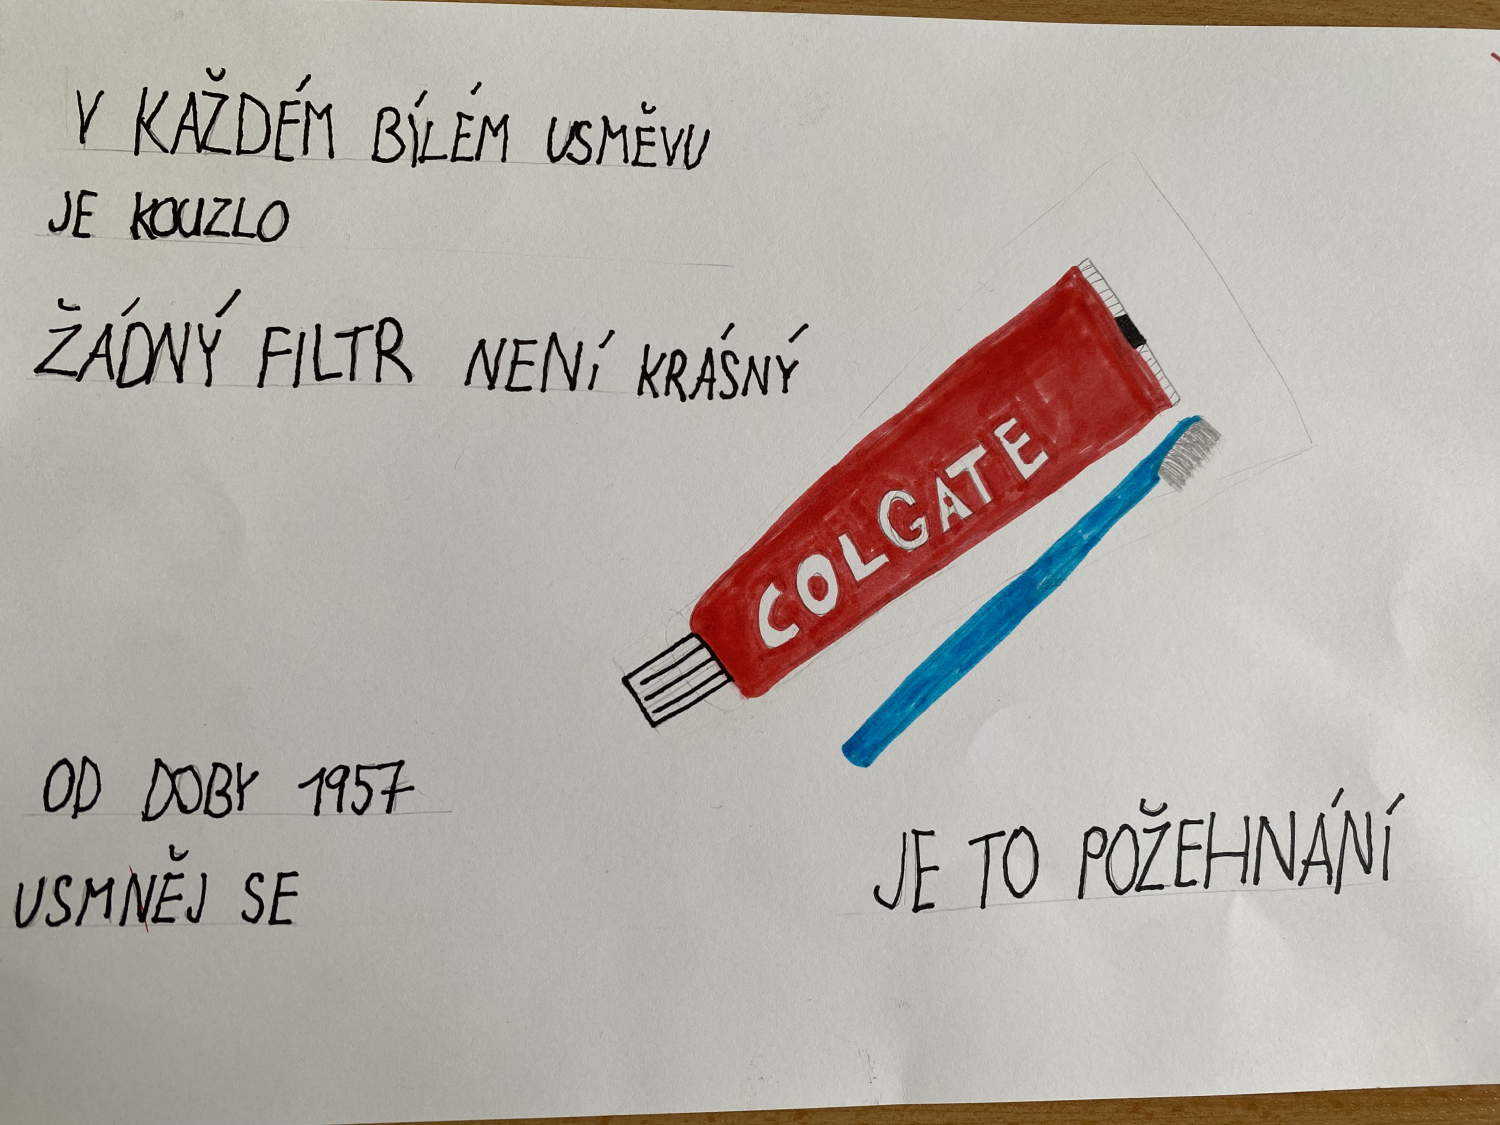 V KAŽDÉM BÍLÉM USMĚVU
JE KOUZLO
ŽÁDNÝ FILTR NENÍ KRÁSNÝ
COLGATE
OD DOBY 1957
USMNĚJ SE
JE TO POŽEHNÁNÍ